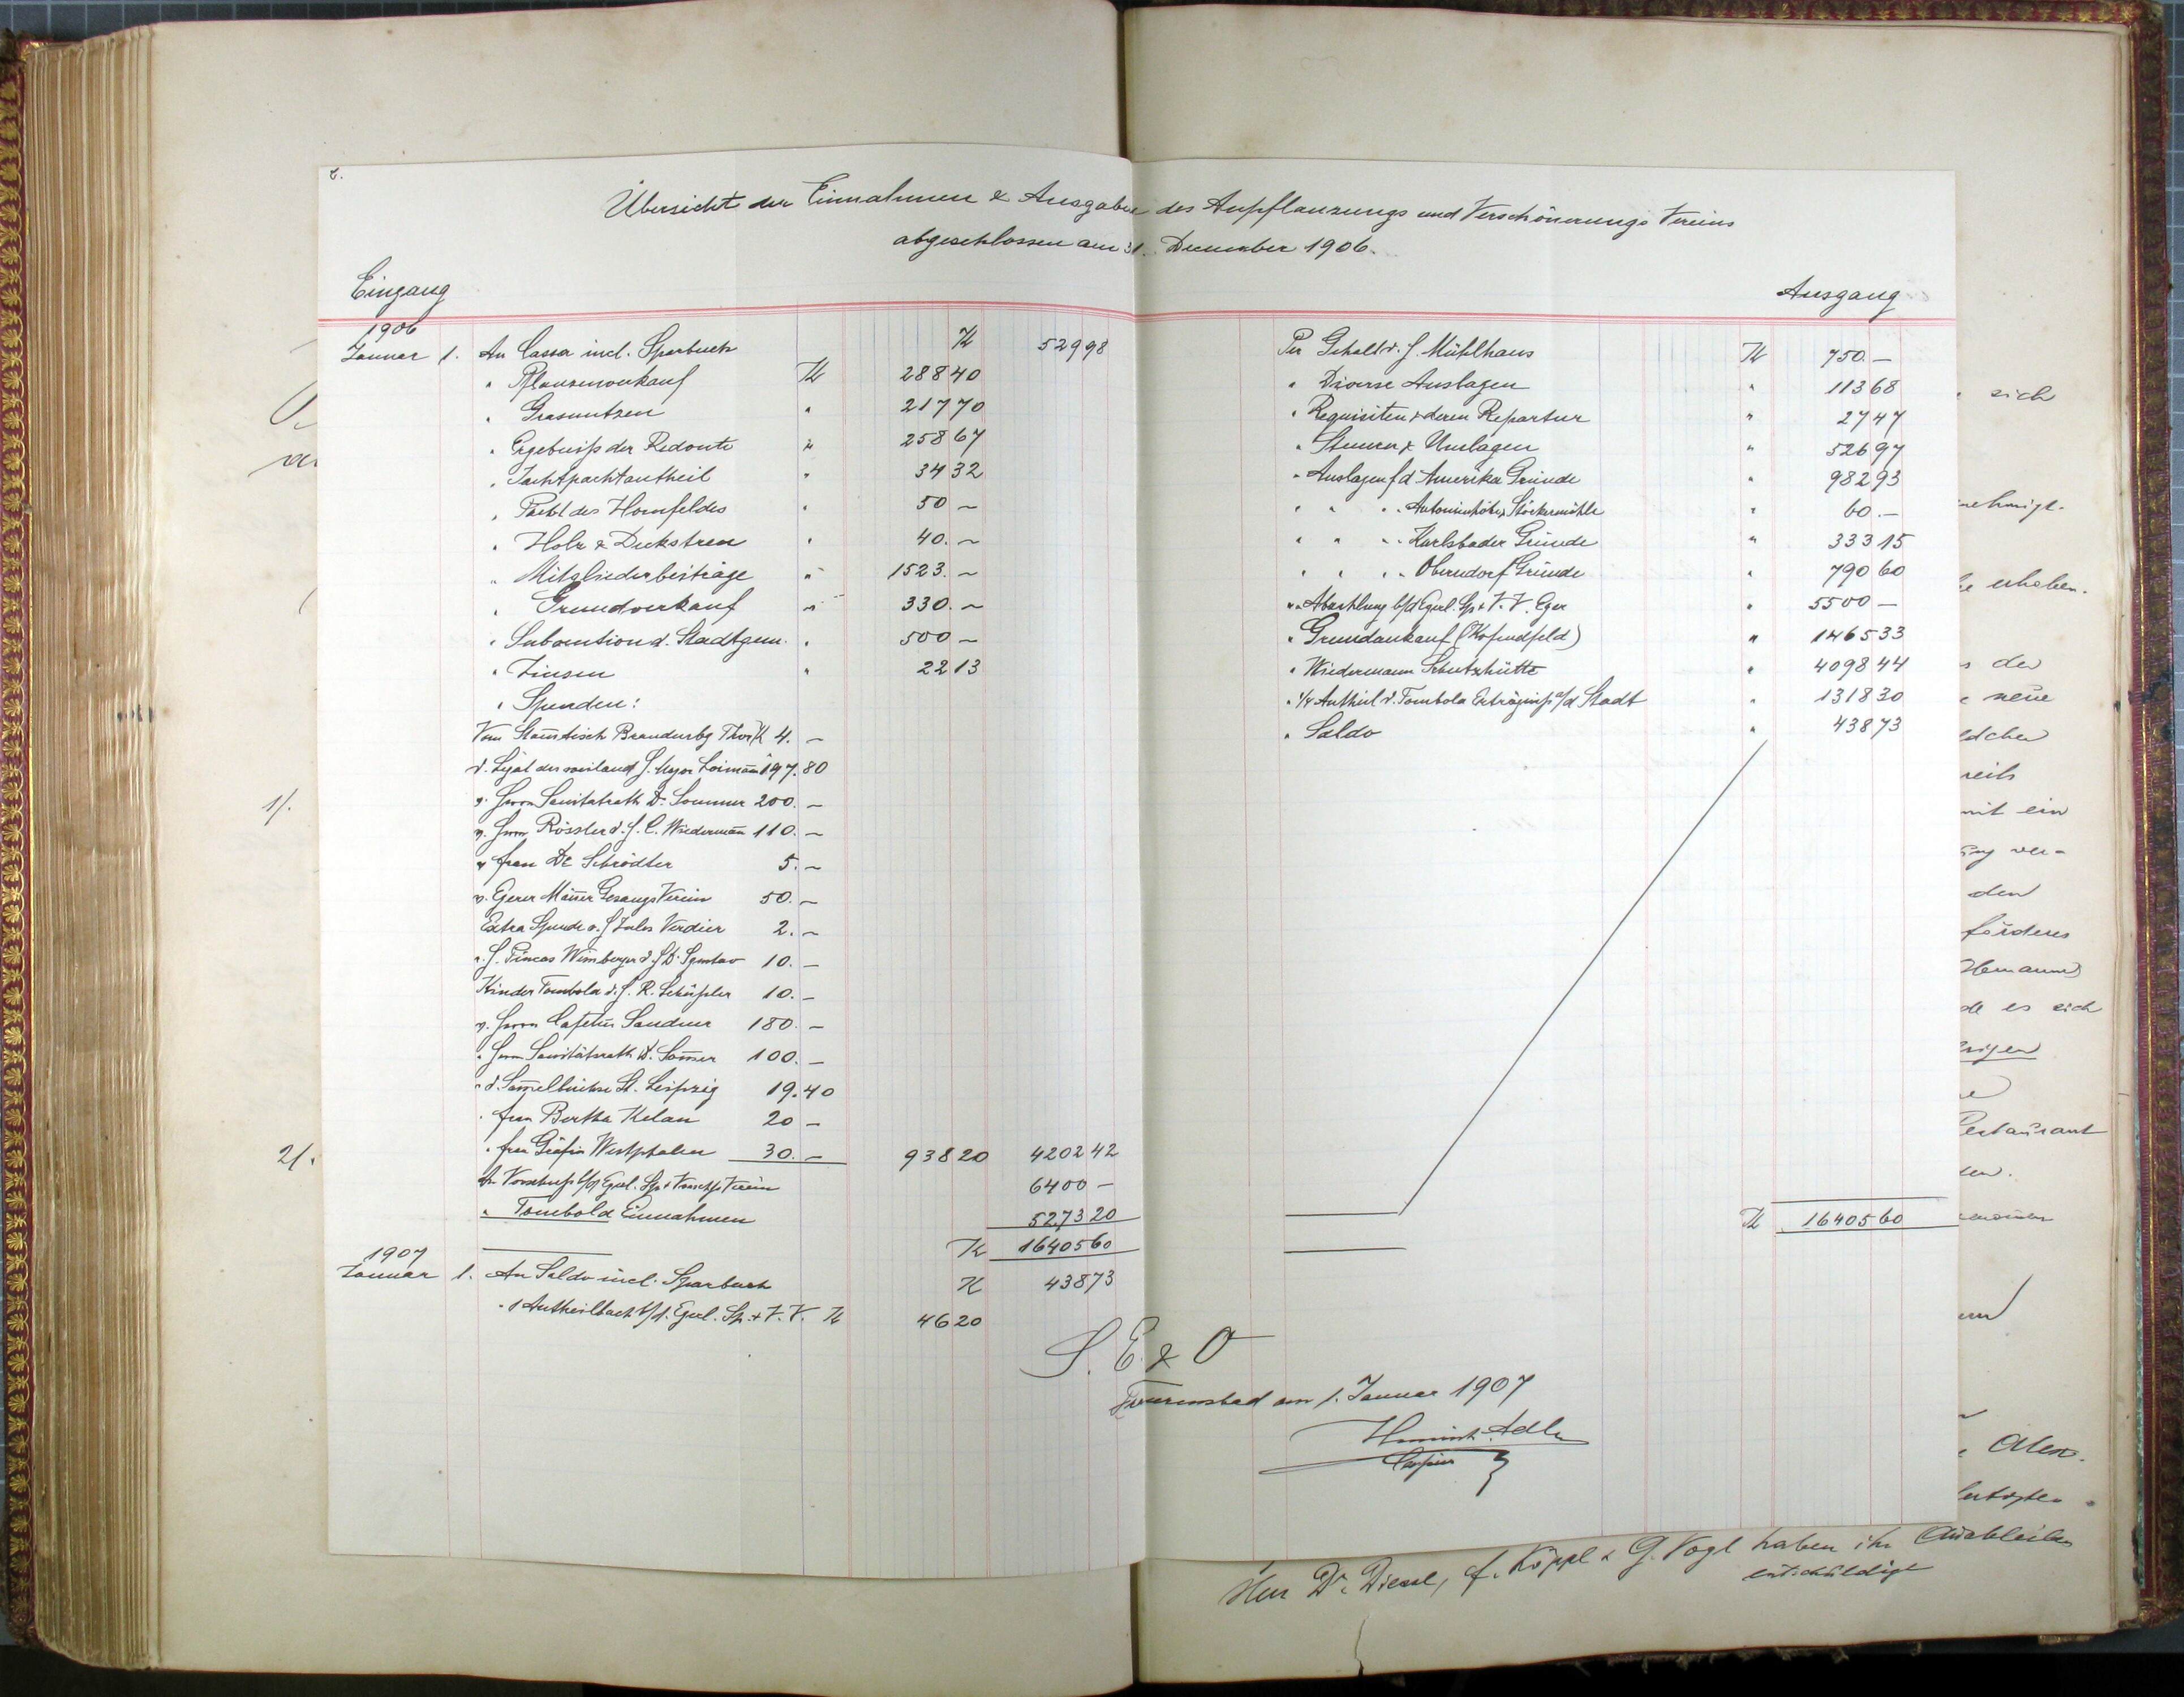 Übersicht der Einnahmen & Ausgaben des Anpflanzungs und Verschönerungs Vereins
abgeschlossen am 31. December 1906.
Eingang
1906
Januar 1. An Cassa incl. Sparbuch K 529 98
" Pflanzenverkauf K 288 40
" Grasnutzen " 217 70
" Ergebniß der Redoute " 258 67
" Jachtpachtantheil " 34 32
" Pacht des Hornfeldes " 50 –
" Holz & Deckstreu " 40. –
" Mitgliederbeiträge " 1523. –
" Grundverkauf " 330. –
" Subvention d. Stadtgem. " 500 –
" Zinsen " 22 13
" Spenden:
Vom Stam̄tisch Brandenbg Thor K 4. –
d. Legat der weiland H. Mayer Loimañ 197.80
v. Herrn Sanitatsrath Dr. Sommer 200. –
v. Herrn Rössler d. H. C. Wiedermañ 110. –
" Frau Dr. Schrödter 5. –
v. Egerer Mäñer Gesangs Verein 50. –
Extra Spende v. H Jules Verdier 2. –
v. H. Pincas Wimberger d. H Dr. 10. –
Kinder Tombola d. H. R. Schüßler 10. –
v. Herrn Cafetier Sandner 180. –
" Herrn Sanitätsrath Dr. Som̄er 100. –
" d. Sam̄elbüchse St. Leipzig 19.40
" Frau Bertha Kelan 20 –
" Frau Gräfin Westphalen 30. – 938 20 4202 42
An Vorschuß b/d Egerl. Sp. & Vorsch. Verein 6400 –
" Tombola Einnahmen 5273 20
K 16405 60
1907
Januar 1. An Saldo incl. Sparbuch K 438 73
" 1 Antheilbuch b/d. Egerl. Sp. + V. V. K 46 20
Ausgang
Per Gehalt d. H. Mühlhans K 750. –
" Diverse Auslagen " 113 68
" Requisiten & deren Repartur " 27 47
" Steuern & Umlagen " 526 97
" Auslagen f d Amerika Gründe " 982 93
" " " " Antonienhöhe, Stöckermühle " 60. –
" " " " Karlsbader Gründe " 333 15
" " " " Oberndorf Gründe " 790 60
" Abzahlung b/d Egerl. Sp + V. V. Eger " 5500 –
" Grundankauf (Kofendfeld) " 1465 33
" Wiedermann Schutzhütte " 4098 44
" 1/4 Antheil d. Tombola Erträgniß a/d Stadt " 1318 30
" Saldo " 438 73
K 16405 60
S. E & O
Franzensbad am 1. Januar 1907
Heinrich Adler
Cassier
1/.
2/.
sich
erheben.
der
neue
mit ein
den
es sich
Restaurant
Herr Dr. Diessl, f. Köppl & G. Vogl haben ihr Ausbleiben
entschuldigt